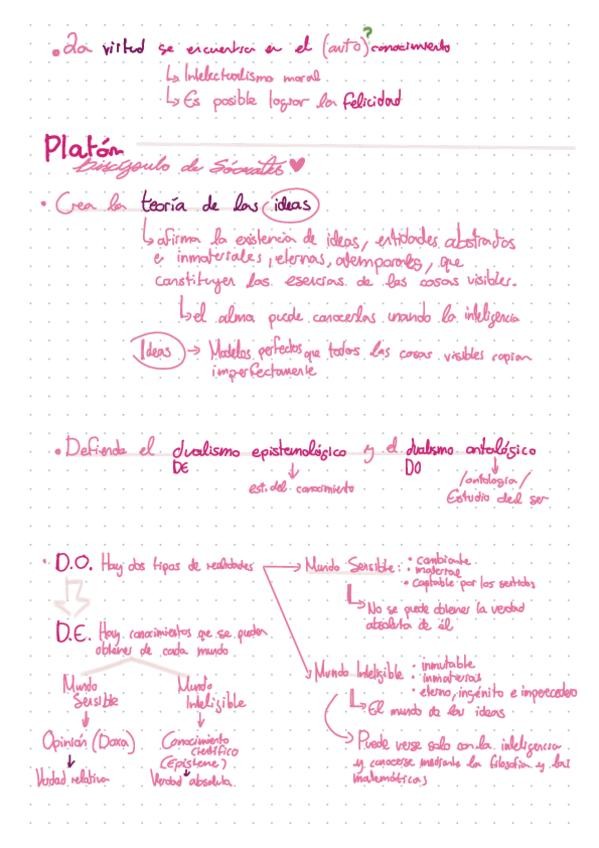 • La virtud se encuentra en el (auto)?conocimiento
↳ Intelectualismo moral
↳ Es posible lograr la felicidad
Platón
Discípulo de Sócrates ♥
• Crea la teoría de las ideas
↳ afirma la existencia de ideas, entidades abstractas
e inmateriales, eternas, atemporales, que
constituyen las esencias de las cosas visibles.
↳ el alma puede conocerlas usando la inteligencia
Ideas → Modelos perfectos que todas las cosas visibles copian
imperfectamente
• Defiende el dualismo epistemológico y el dualismo ontológico
DE DO
↓ est. del conocimiento
↓ /ontología/
Estudio del ser
• D.O. Hay dos tipos de realidades
→ Mundo Sensible: • cambiante
• material
• captable por los sentidos
↳ No se puede obtener la verdad
absoluta de él
D.E. Hay conocimientos que se pueden
obtener de cada mundo
Mundo Sensible
↓
Opinión (Doxa)
↓
Verdad relativa
Mundo Inteligible
↓
Conocimiento
científico
(epísteme)
↓
Verdad absoluta
Mundo Inteligible • inmutable
• inmaterial
• eterno, ingénito e imperecedero
↳ El mundo de las ideas
Puede verse solo con la inteligencia
y conocerse mediante la filosofía y las
matemáticas